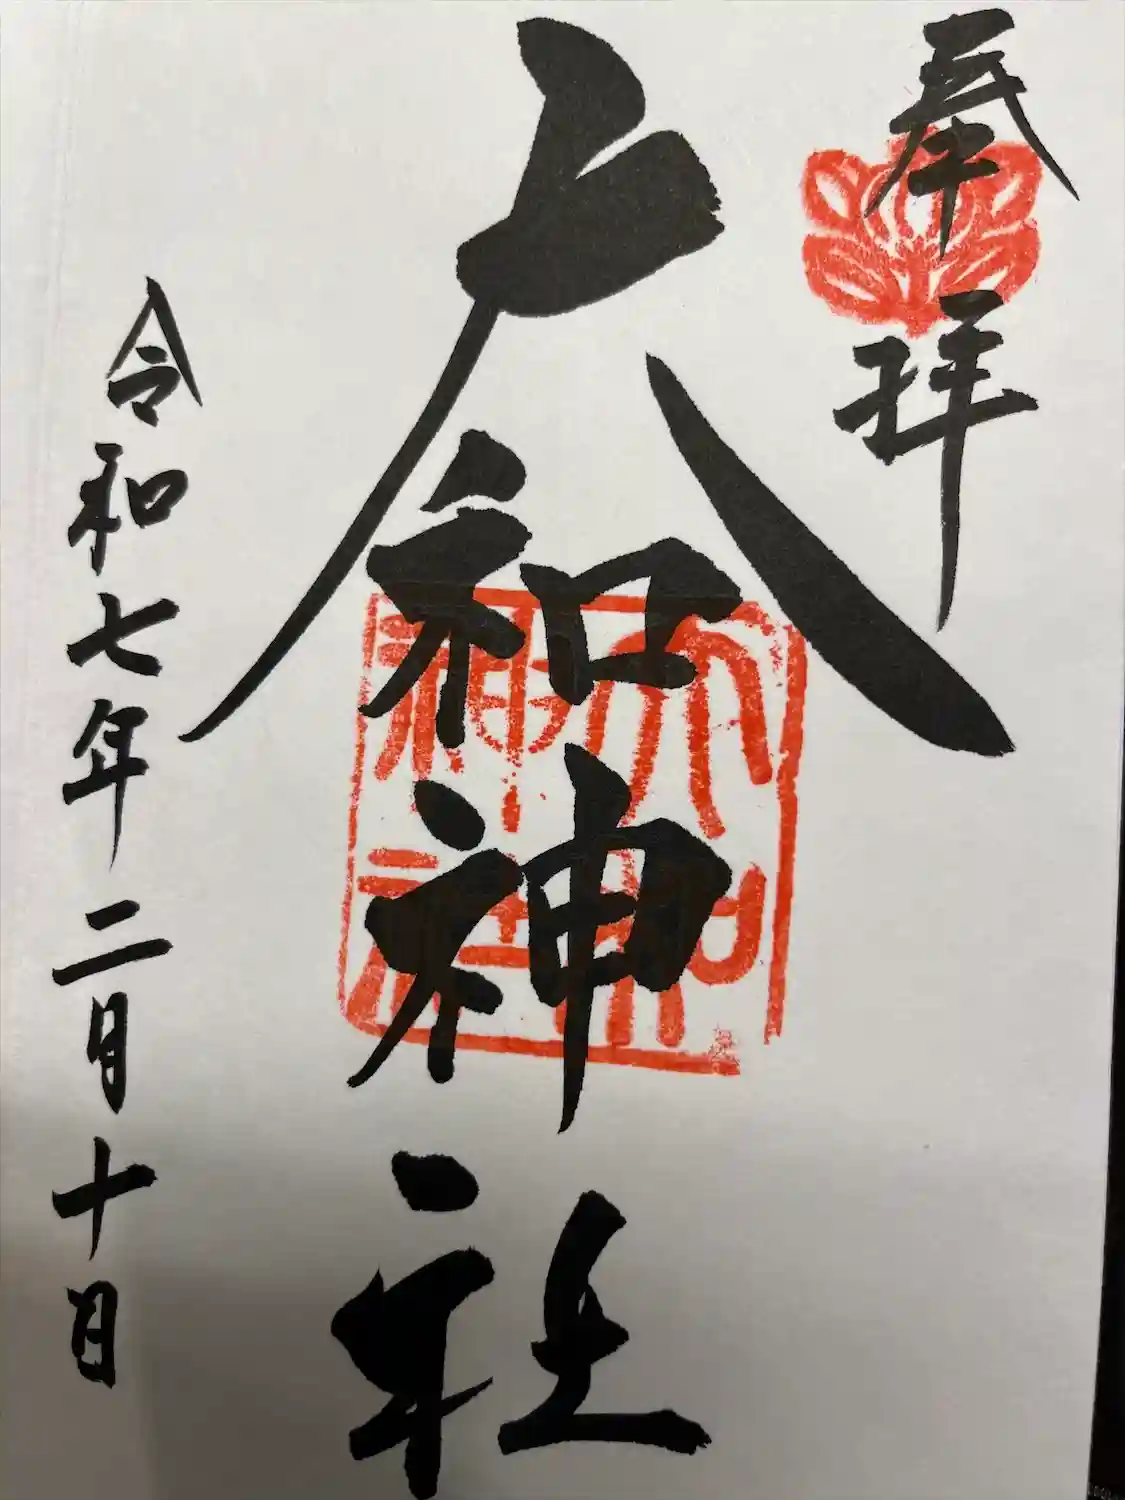 奉拝
大和神社
大和神社
令和七年二月十日